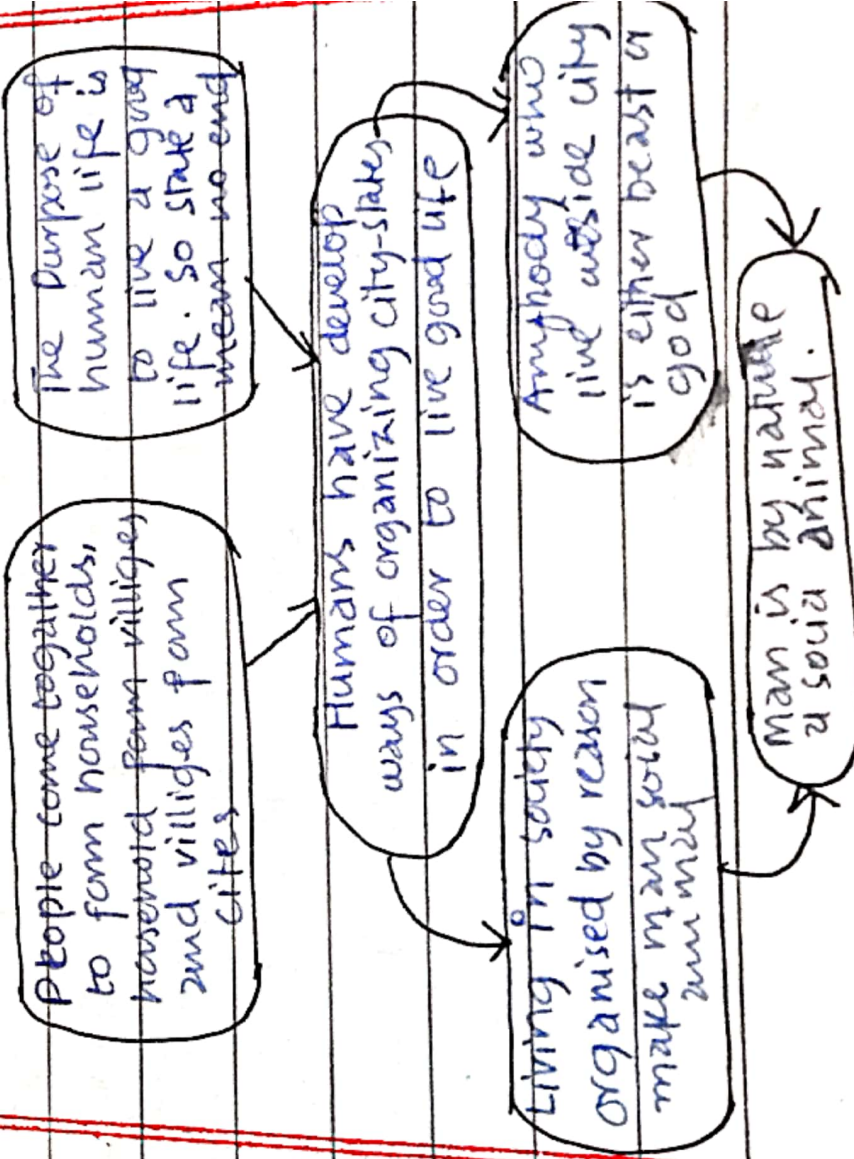 People come togather
to form households,
household form villiges
and villiges form
cites
The Purpose of
human life is
to live a good
life. So state a
mean no end
Humans have develop
ways of organizing city-states
in order to live good life
Living in society
organised by reason
make man social
animal
Anybody who
live outside city
is either beast or
god
Man is by nature
a social animal.